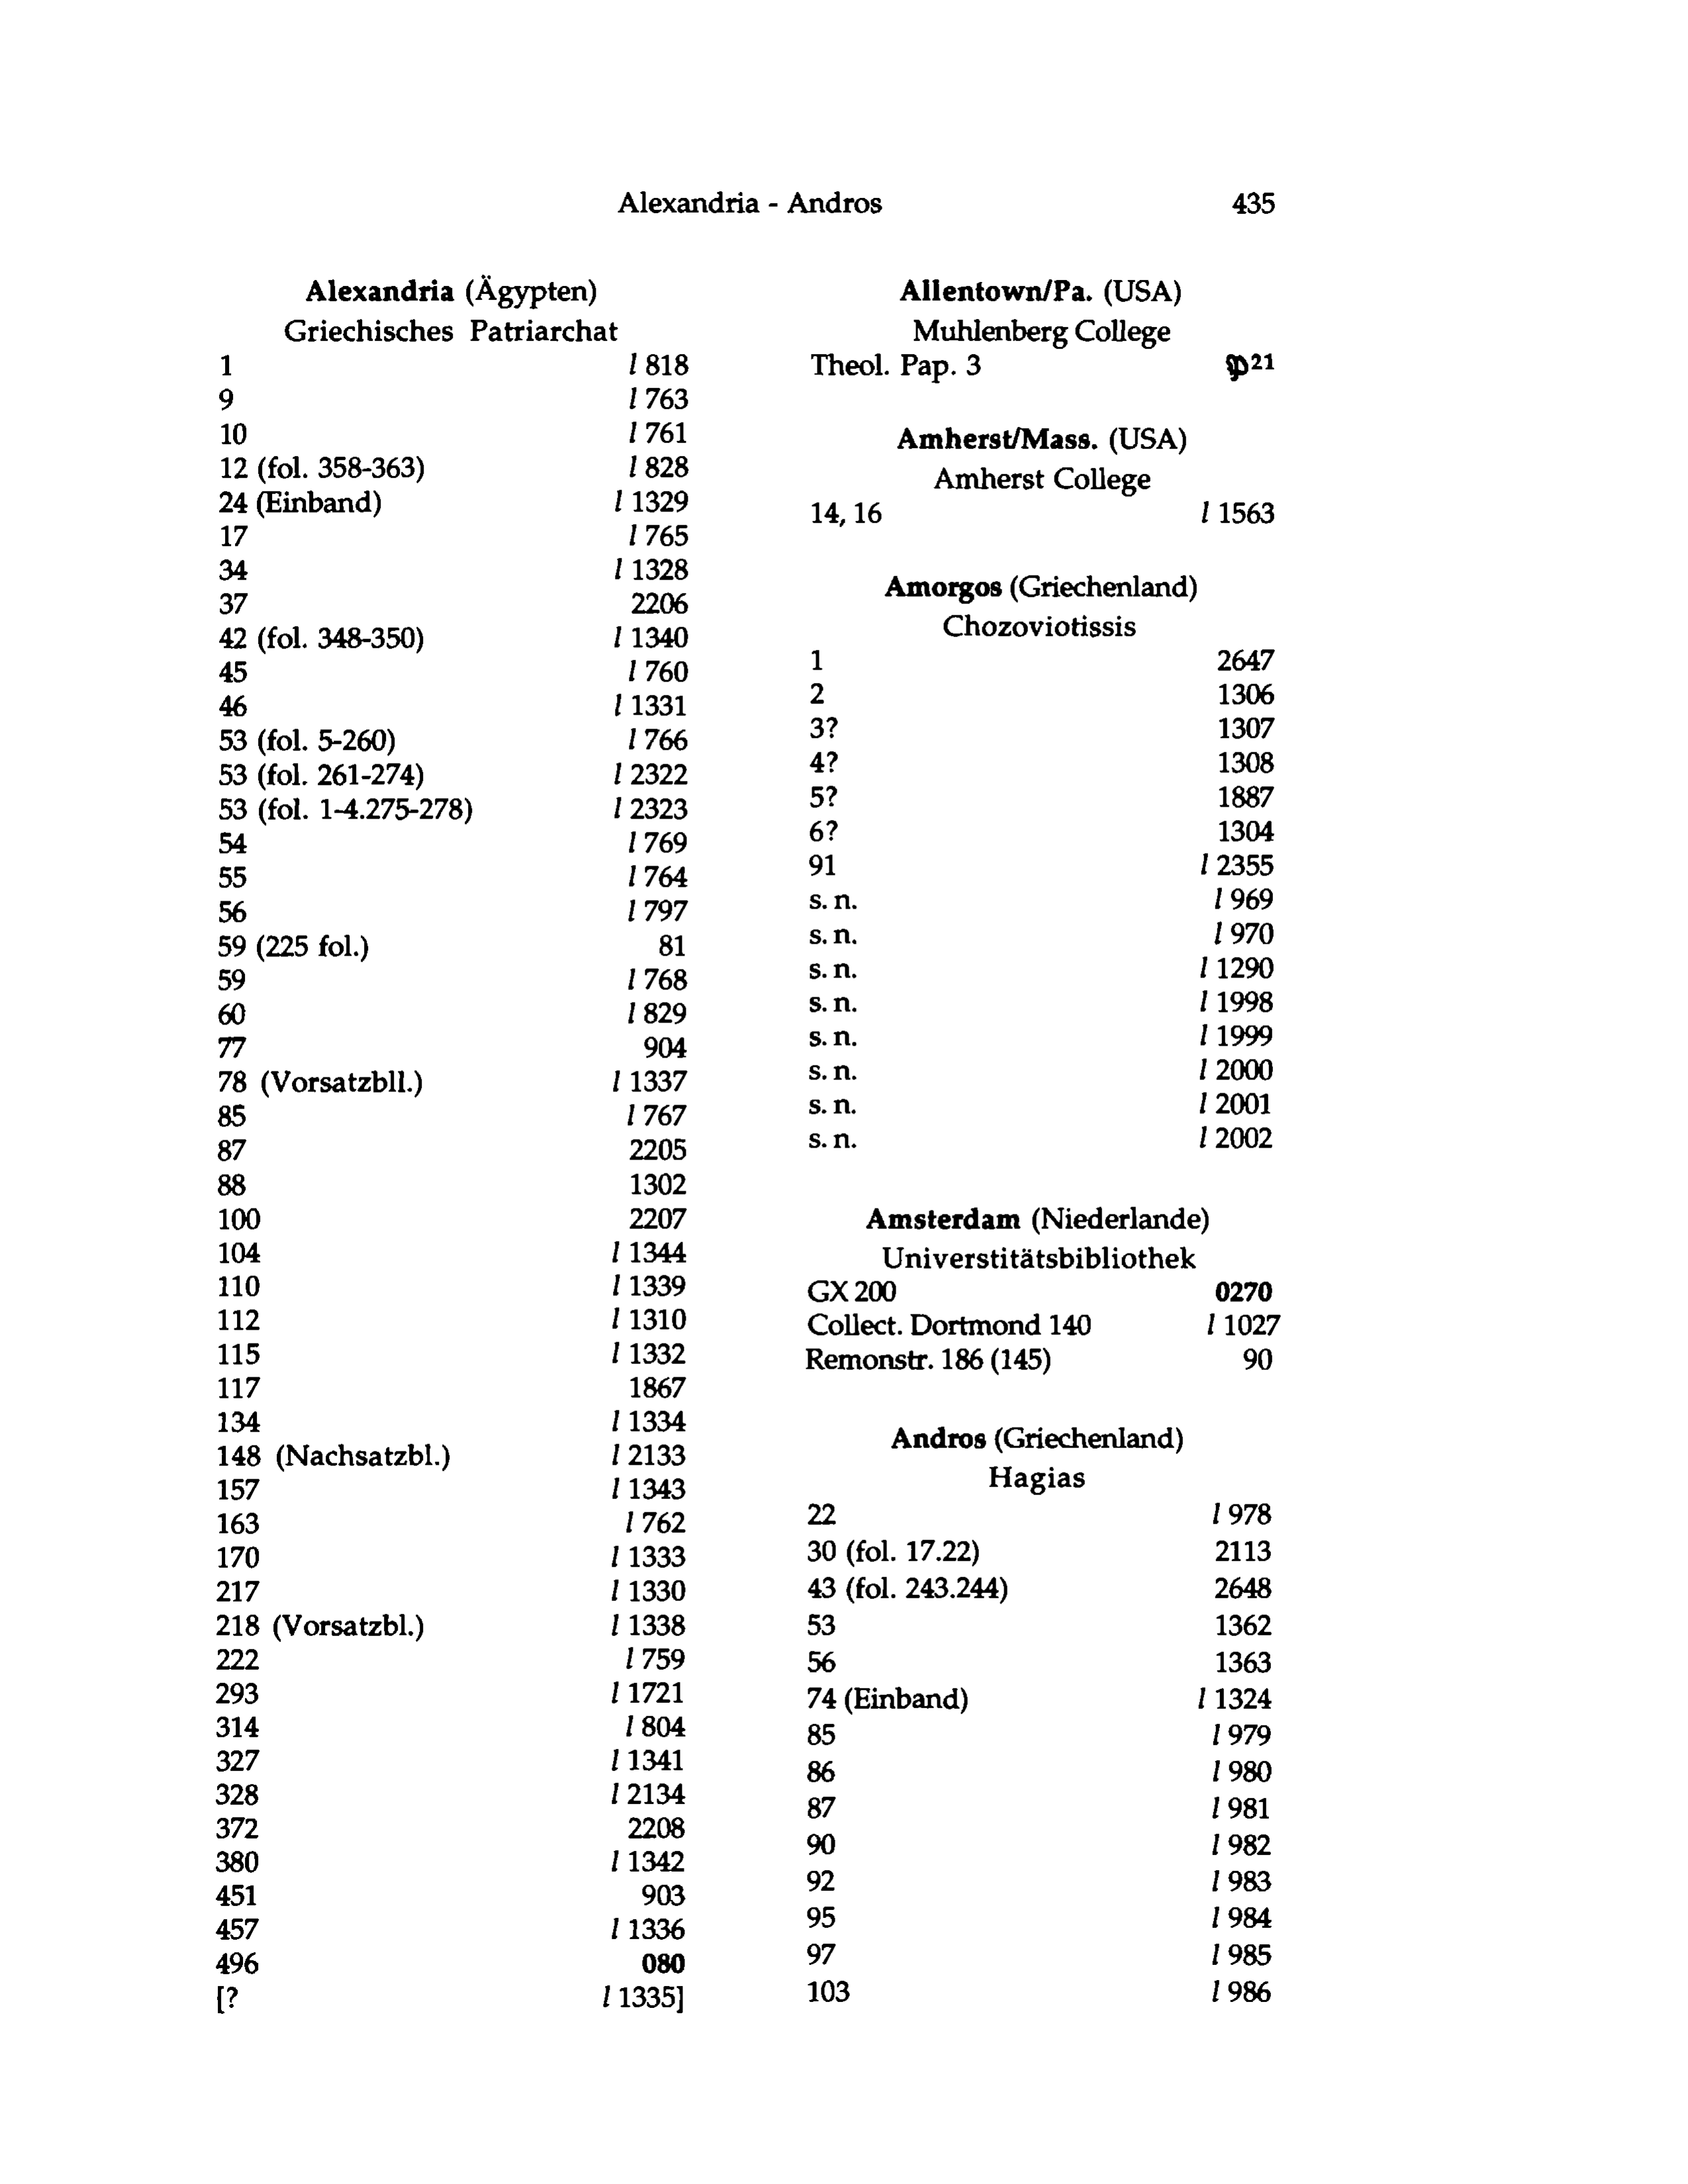 Alexandria - Andros 435
Alexandria (Ägypten)
Griechisches Patriarchat
1 l 818
9 l 763
10 l 761
12 (fol. 358-363) l 828
24 (Einband) l 1329
17 l 765
34 l 1328
37 2206
42 (fol. 348-350) l 1340
45 l 760
46 l 1331
53 (fol. 5-260) l 766
53 (fol. 261-274) l 2322
53 (fol. 1-4.275-278) l 2323
54 l 769
55 l 764
56 l 797
59 (225 fol.) 81
59 l 768
60 l 829
77 904
78 (Vorsatzbll.) l 1337
85 l 767
87 2205
88 1302
100 2207
104 l 1344
110 l 1339
112 l 1310
115 l 1332
117 1867
134 l 1334
148 (Nachsatzbl.) l 2133
157 l 1343
163 l 762
170 l 1333
217 l 1330
218 (Vorsatzbl.) l 1338
222 l 759
293 l 1721
314 l 804
327 l 1341
328 l 2134
372 2208
380 l 1342
451 903
457 l 1336
496 080
[? l 1335]
Allentown/Pa. (USA)
Muhlenberg College
Theol. Pap. 3 𝔓21
Amherst/Mass. (USA)
Amherst College
14, 16 l 1563
Amorgos (Griechenland)
Chozoviotissis
1 2647
2 1306
3? 1307
4? 1308
5? 1887
6? 1304
91 l 2355
s. n. l 969
s. n. l 970
s. n. l 1290
s. n. l 1998
s. n. l 1999
s. n. l 2000
s. n. l 2001
s. n. l 2002
Amsterdam (Niederlande)
Universtitätsbibliothek
GX 200 0270
Collect. Dortmond 140 l 1027
Remonstr. 186 (145) 90
Andros (Griechenland)
Hagias
22 l 978
30 (fol. 17.22) 2113
43 (fol. 243.244) 2648
53 1362
56 1363
74 (Einband) l 1324
85 l 979
86 l 980
87 l 981
90 l 982
92 l 983
95 l 984
97 l 985
103 l 986